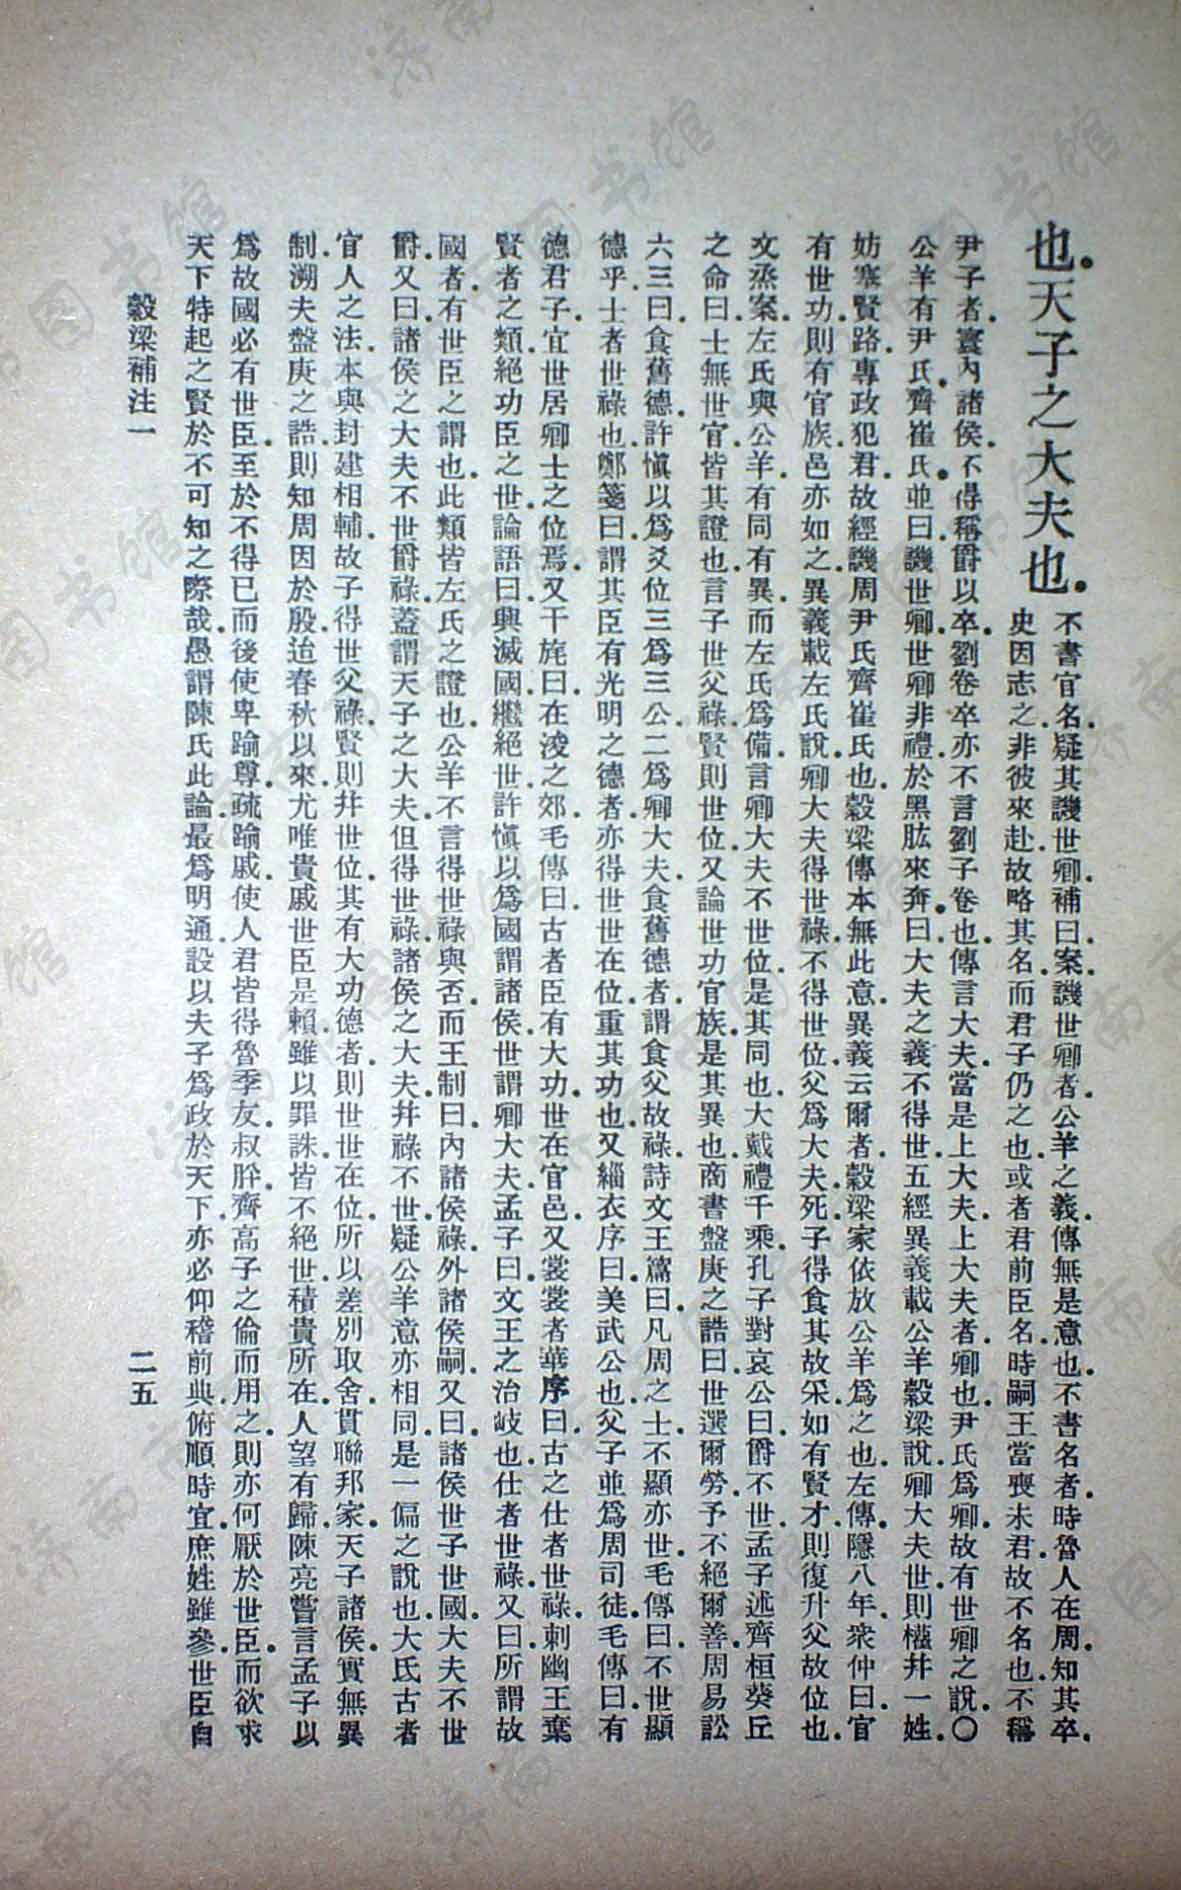 也。天子之大夫也。
不書官名。疑其譏世卿。補曰。案譏世卿者。公羊之義。傳無是意也。不書名者。時魯人在周。知其卒。
史因志之。非彼來赴。故略其名。而君子仍之也。或者君前臣名。時嗣王當喪未君。故不名也。不稱
尹子者。寰內諸侯。不得稱爵以卒。劉卷卒亦不言劉子卷也。傳言大夫。當是上大夫。上大夫者。卿也。尹氏爲卿。故有世卿之說。〇
公羊有尹氏。齊崔氏。並曰。譏世卿。世卿非禮。於黑肱來奔。曰。大夫之義不得世。五經異義載公羊穀梁說。卿大夫世。則權幷一姓。
妨塞賢路。專政犯君。故經譏周尹氏齊崔氏也。穀梁傳本無此意。異義云爾者。穀梁家依放公羊爲之也。左傳隱八年。衆仲曰。官
有世功。則有官族。邑亦如之。異義載左氏說。卿大夫得世祿。不得世位。父爲大夫死。子得食其故采。如有賢才。則復升父故位也。
文烝案。左氏與公羊。有同有異。而左氏爲備。言卿大夫不世位。是其同也。大戴禮千乘。孔子對哀公曰。爵不世。孟子述齊桓葵丘
之命曰。士無世官。皆其證也。言子世父祿。賢則世位。又論世功官族。是其異也。商書盤庚之誥曰。世選爾勞。予不絕爾善。周易訟
六三曰。食舊德。許愼以爲爻位三爲三公。二爲卿大夫。食舊德者。謂食父故祿。詩文王篇曰。凡周之士。不顯亦世。毛傳曰。不世顯
德乎。士者世祿也。鄭箋曰。謂其臣有光明之德者。亦得世世在位。重其功也。又緇衣序曰。美武公也。父子並爲周司徒。毛傳曰。有
德君子。宜世居卿士之位焉。又干旄曰。在浚之郊。毛傳曰。古者臣有大功。世在官邑。又裳裳者華序曰。古之仕者世祿。刺幽王棄
賢者之類。絕功臣之世。論語曰。興滅國。繼絕世。許愼以爲國謂諸侯。世謂卿大夫。孟子曰。文王之治岐也。仕者世祿。又曰。所謂故
國者。有世臣之謂也。此類皆左氏之證也。公羊不言得世祿與否。而王制曰。內諸侯祿。外諸侯嗣。又曰。諸侯世子世國。大夫不世
爵。又曰。諸侯之大夫不世爵祿。蓋謂天子之大夫。但得世祿。諸侯之大夫。幷祿不世。疑公羊意亦相同。是一偏之說也。大氐古者
官人之法。本與封建相輔。故子得世父祿。賢則幷世位。其有大功德者。則世世在位。所以差別取舍。貫聯邦家。天子諸侯。實無異
制。溯夫盤庚之誥。則知周因於殷。迨春秋以來。尤唯貴戚世臣是賴。雖以罪誅。皆不絕世。積貴所在。人望有歸。陳亮嘗言。孟子以
爲故國必有世臣。至於不得已而後使卑踰尊。疏踰戚。使人君皆得魯季友。叔肸。齊高子之倫而用之。則亦何厭於世臣。而欲求
天下特起之賢於不可知之際哉。愚謂陳氏此論。最爲明通。設以夫子爲政於天下。亦必仰稽前典。俯順時宜。庶姓雖參。世臣自
穀梁補注一
二五